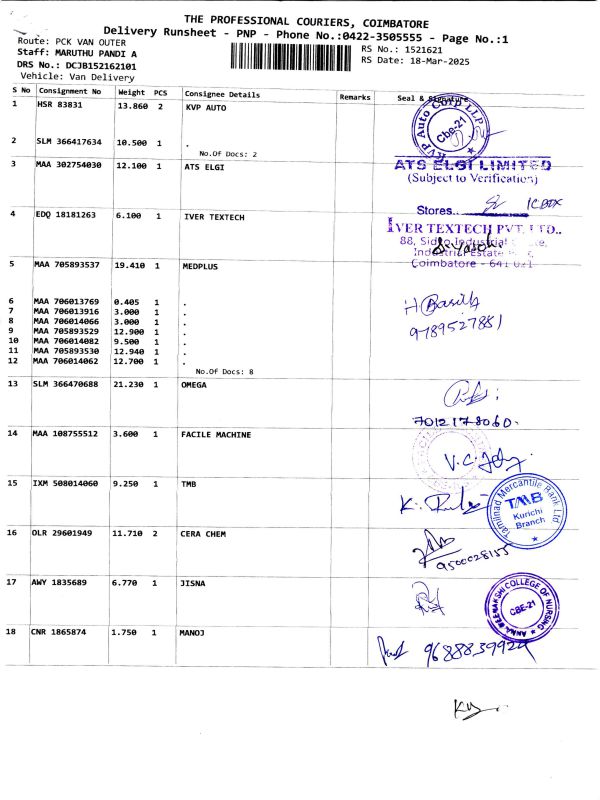 THE PROFESSIONAL COURIERS, COIMBATORE
Delivery Runsheet - PNP - Phone No.:0422-3505555 - Page No.:1
Route: PCK VAN OUTER
RS No.: 1521621
Staff: MARUTHU PANDI A
RS Date: 18-Mar-2025
DRS No.: DCJB152162101
Vehicle: Van Delivery
S No Consignment No Weight PCS Consignee Details Remarks Seal & Signature
1 HSR 83831 13.860 2 KVP AUTO
KVP Auto Corp LLP
Cbe-21
2 SLM 366417634 10.500 1 .
No.Of Docs: 2
3 MAA 302754030 12.100 1 ATS ELGI
ATS ELGI LIMITED
(Subject to Verification)
Stores..
4 EDQ 18181263 6.100 1 IVER TEXTECH
IVER TEXTECH PVT. LTD..
88, Sidco Industrial
Industrial Estate
Coimbatore - 641 021
5 MAA 705893537 19.410 1 MEDPLUS
6 MAA 706013769 0.405 1 .
7 MAA 706013916 3.000 1 .
8 MAA 706014066 3.000 1 .
9 MAA 705893529 12.900 1 .
10 MAA 706014082 9.500 1 .
11 MAA 705893530 12.940 1 .
12 MAA 706014062 12.700 1 .
No.Of Docs: 8
9789527881
13 SLM 366470688 21.230 1 OMEGA
7012178060.
14 MAA 108755512 3.600 1 FACILE MACHINE
15 IXM 508014060 9.250 1 TMB
Tamilnad Mercantile Bank Ltd
TMB
Kurichi
Branch
16 OLR 29601949 11.710 2 CERA CHEM
17 AWY 1835689 6.770 1 JISNA
ANNA MEENAKSHI COLLEGE OF NURSING
CBE-21
18 CNR 1865874 1.750 1 MANOJ